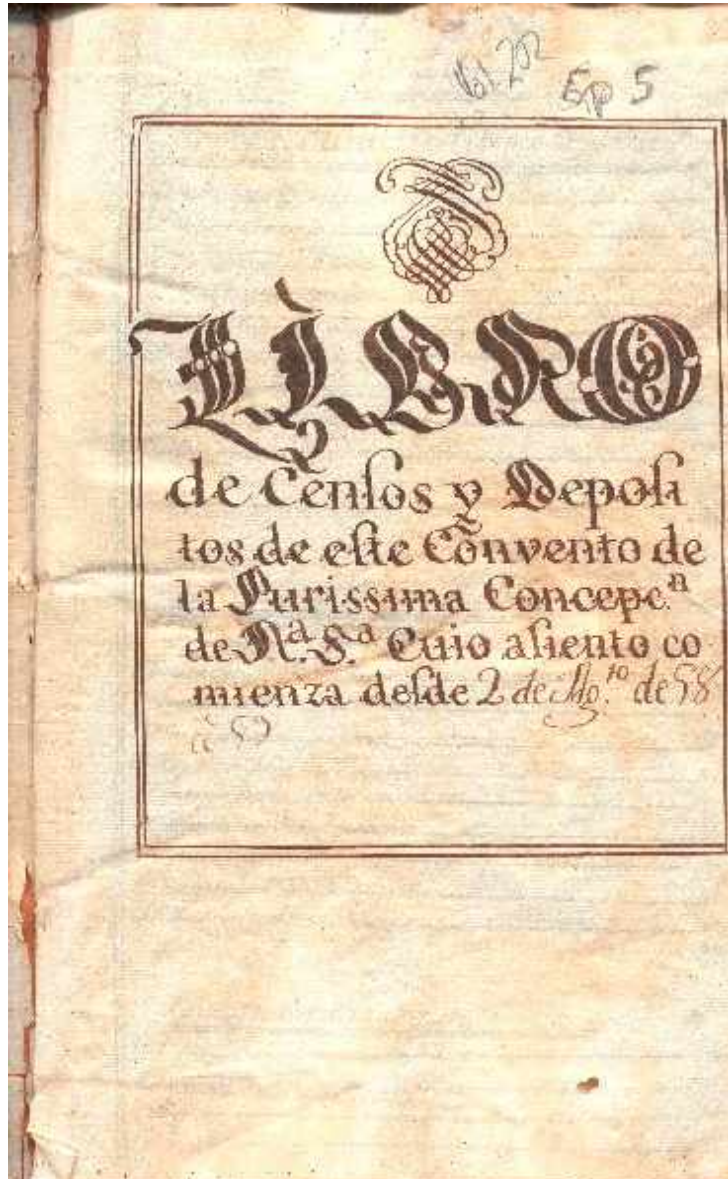 Vol 202 Exp 5
LIBRO
de Censos y Deposi
tos de este Convento de
la Purissima Concepc.ⁿ
de N.ª S.ª Cuio asiento co
mienza desde 2 de Ag.ᵗᵒ de 58